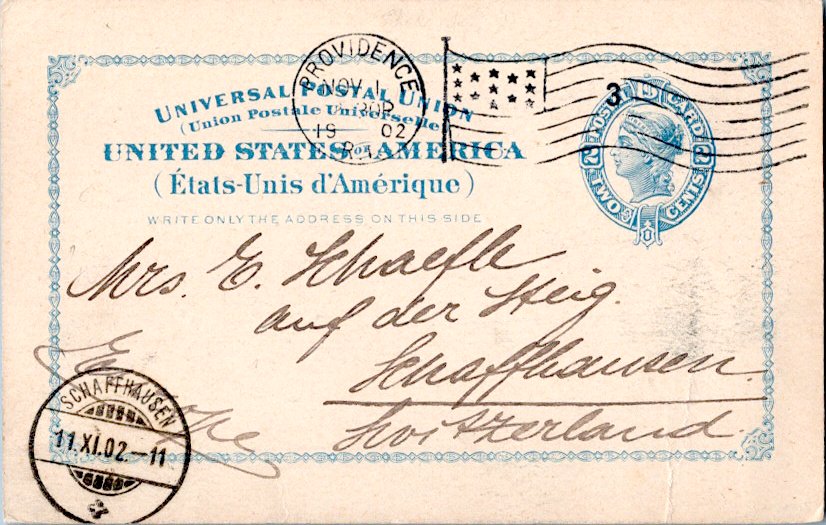 PROVIDENCE
NOV 1
30P
19 02
R.I.
UNIVERSAL POSTAL UNION
(Union Postale Universelle)
UNITED STATES OF AMERICA
(États-Unis d'Amérique)
WRITE ONLY THE ADDRESS ON THIS SIDE
3
POSTAL CARD
2 2
TWO CENTS
Mrs. E. Schaefle
auf der Steig.
Schaffhausen.
Switzerland.
SCHAFFHAUSEN
11.XI.02.-11